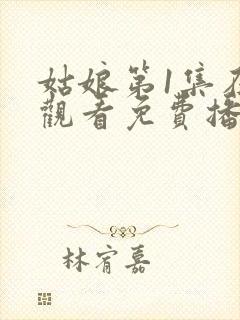 姑娘第1集
觀看免費播
林宥嘉